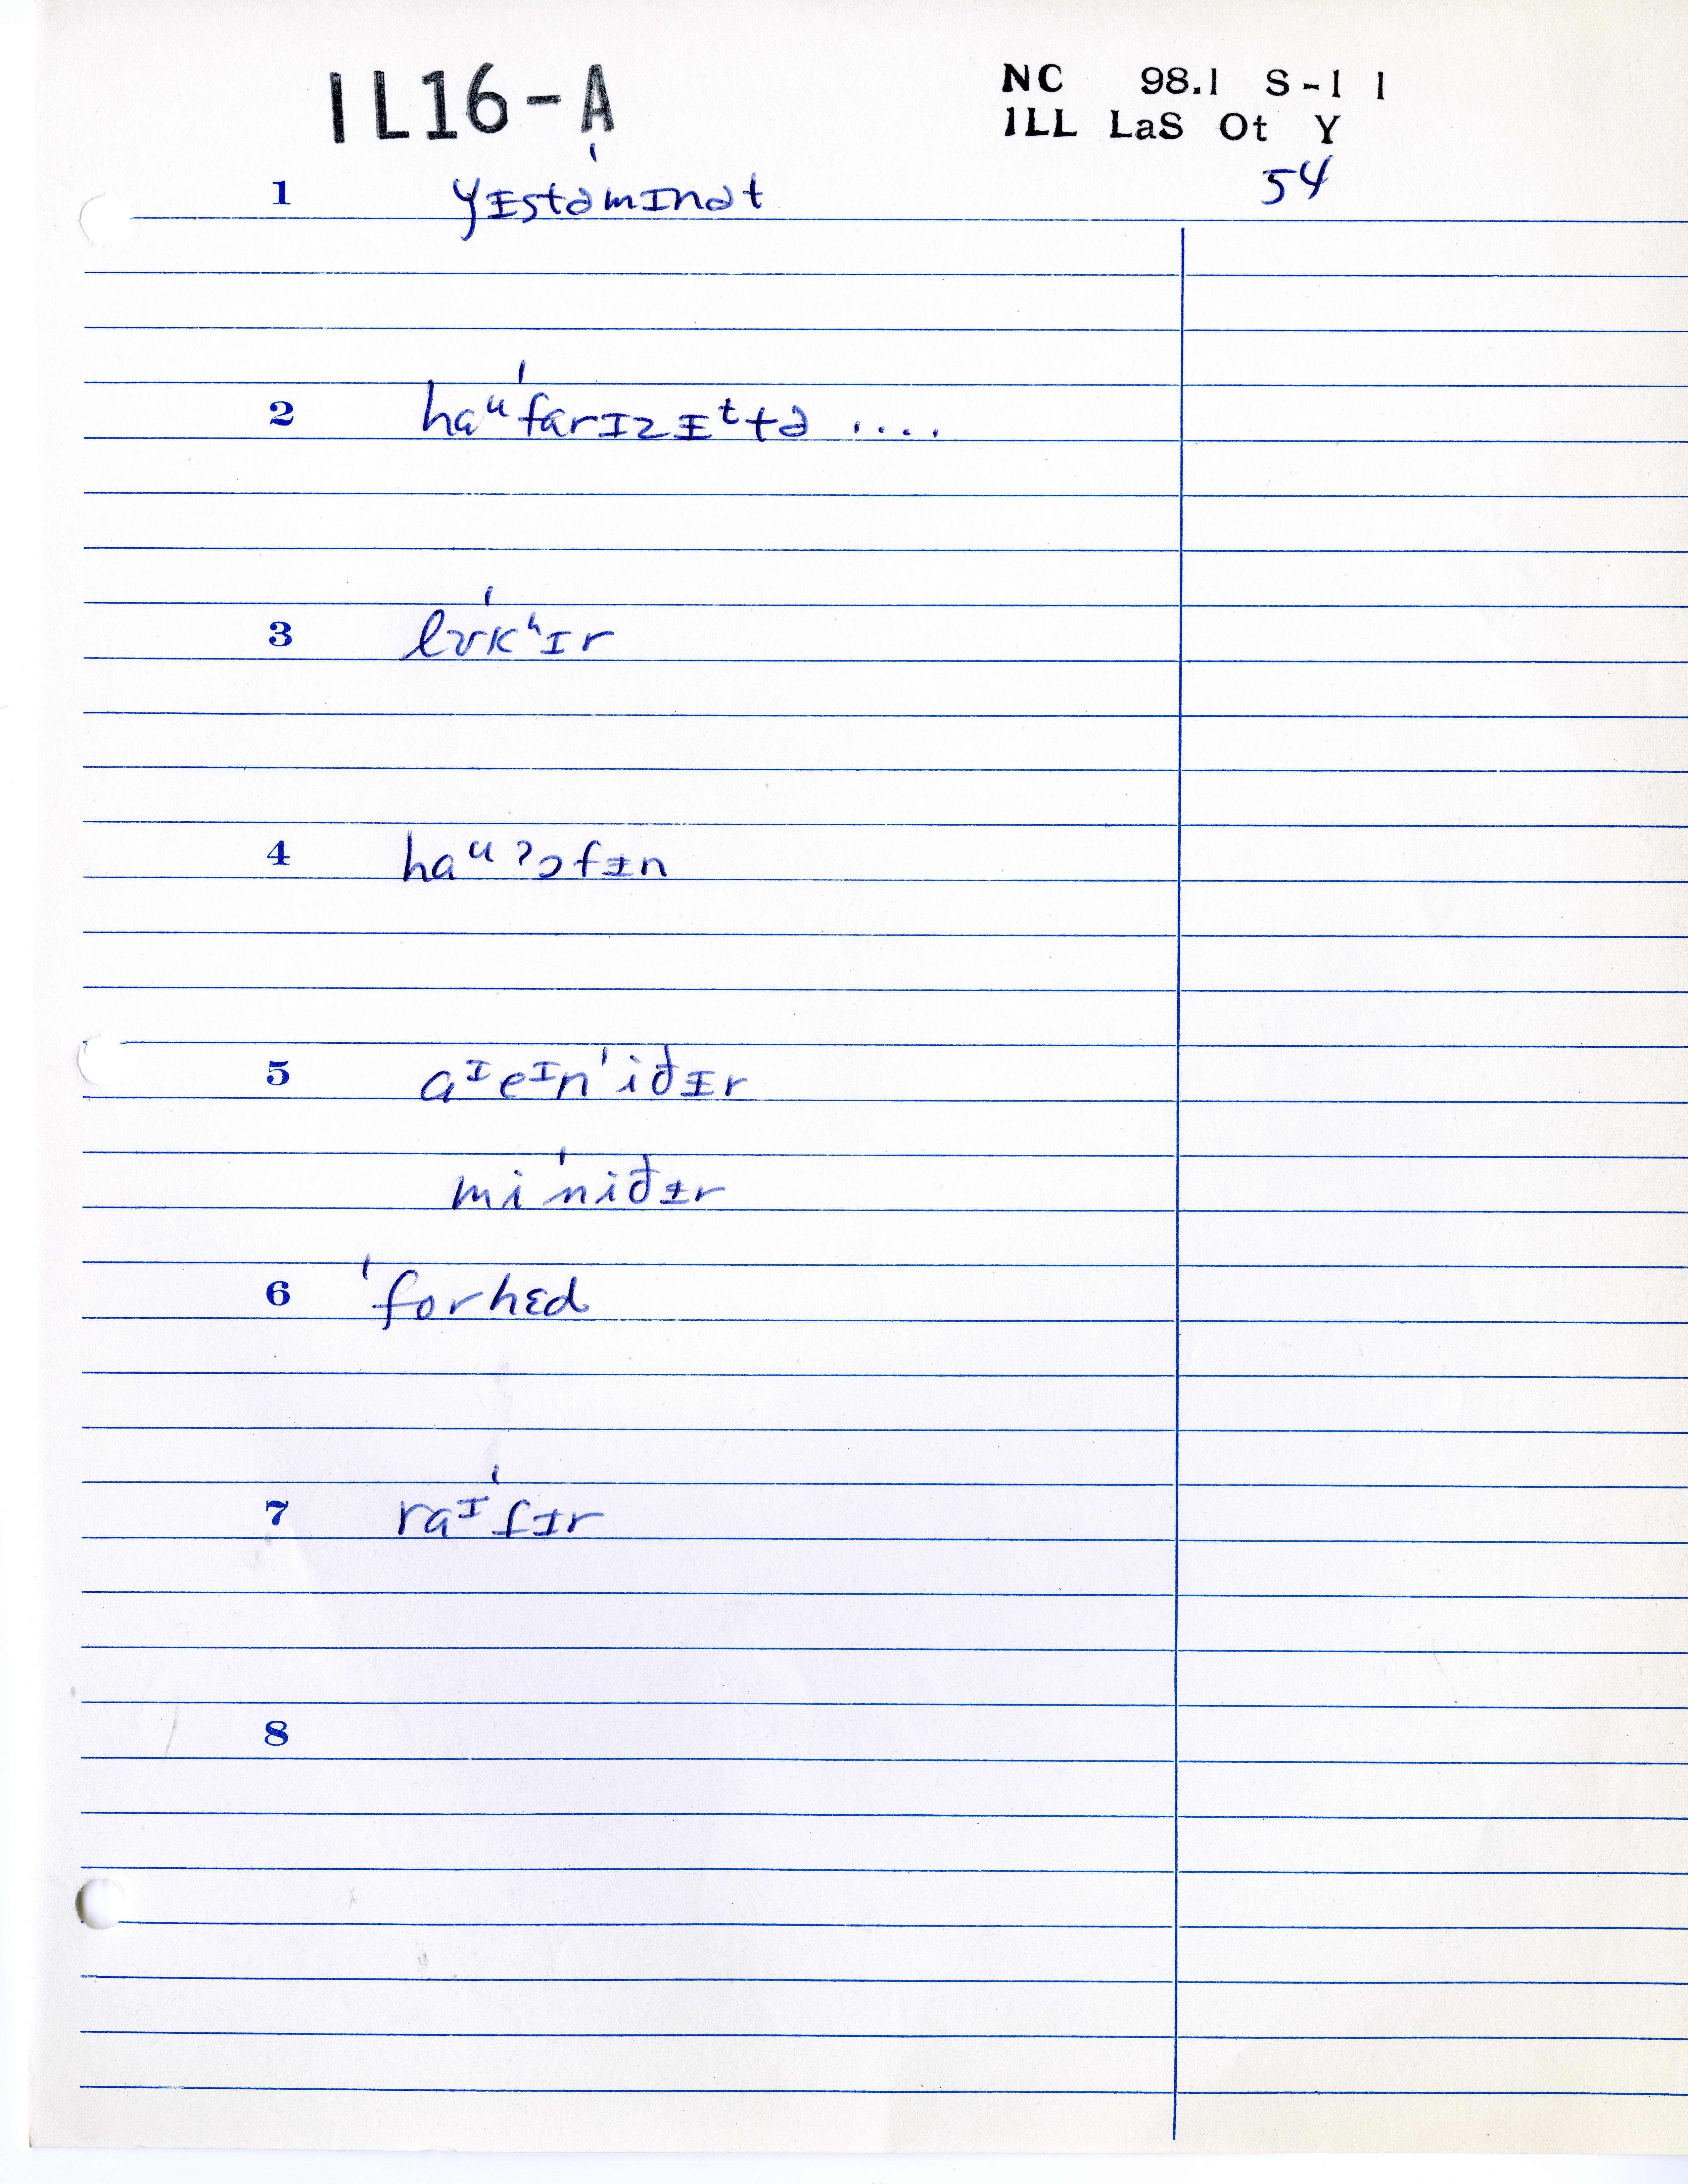 IL16-A
NC 98.1 S-1 1
ILL LaS Ot Y
54
1 yɪ̵stəˈmɪnət
2 haᵘˈfarɪzɪ̵ᵗtə ....
3 lʊˈkʰɪr
4 haᵘʔɔfɪ̵n
5 aᶦeᶦnˈiðɪ̵r
miˈniðɪ̵r
6 ˈforhɛd
7 raᶦˈtɪ̵r
8